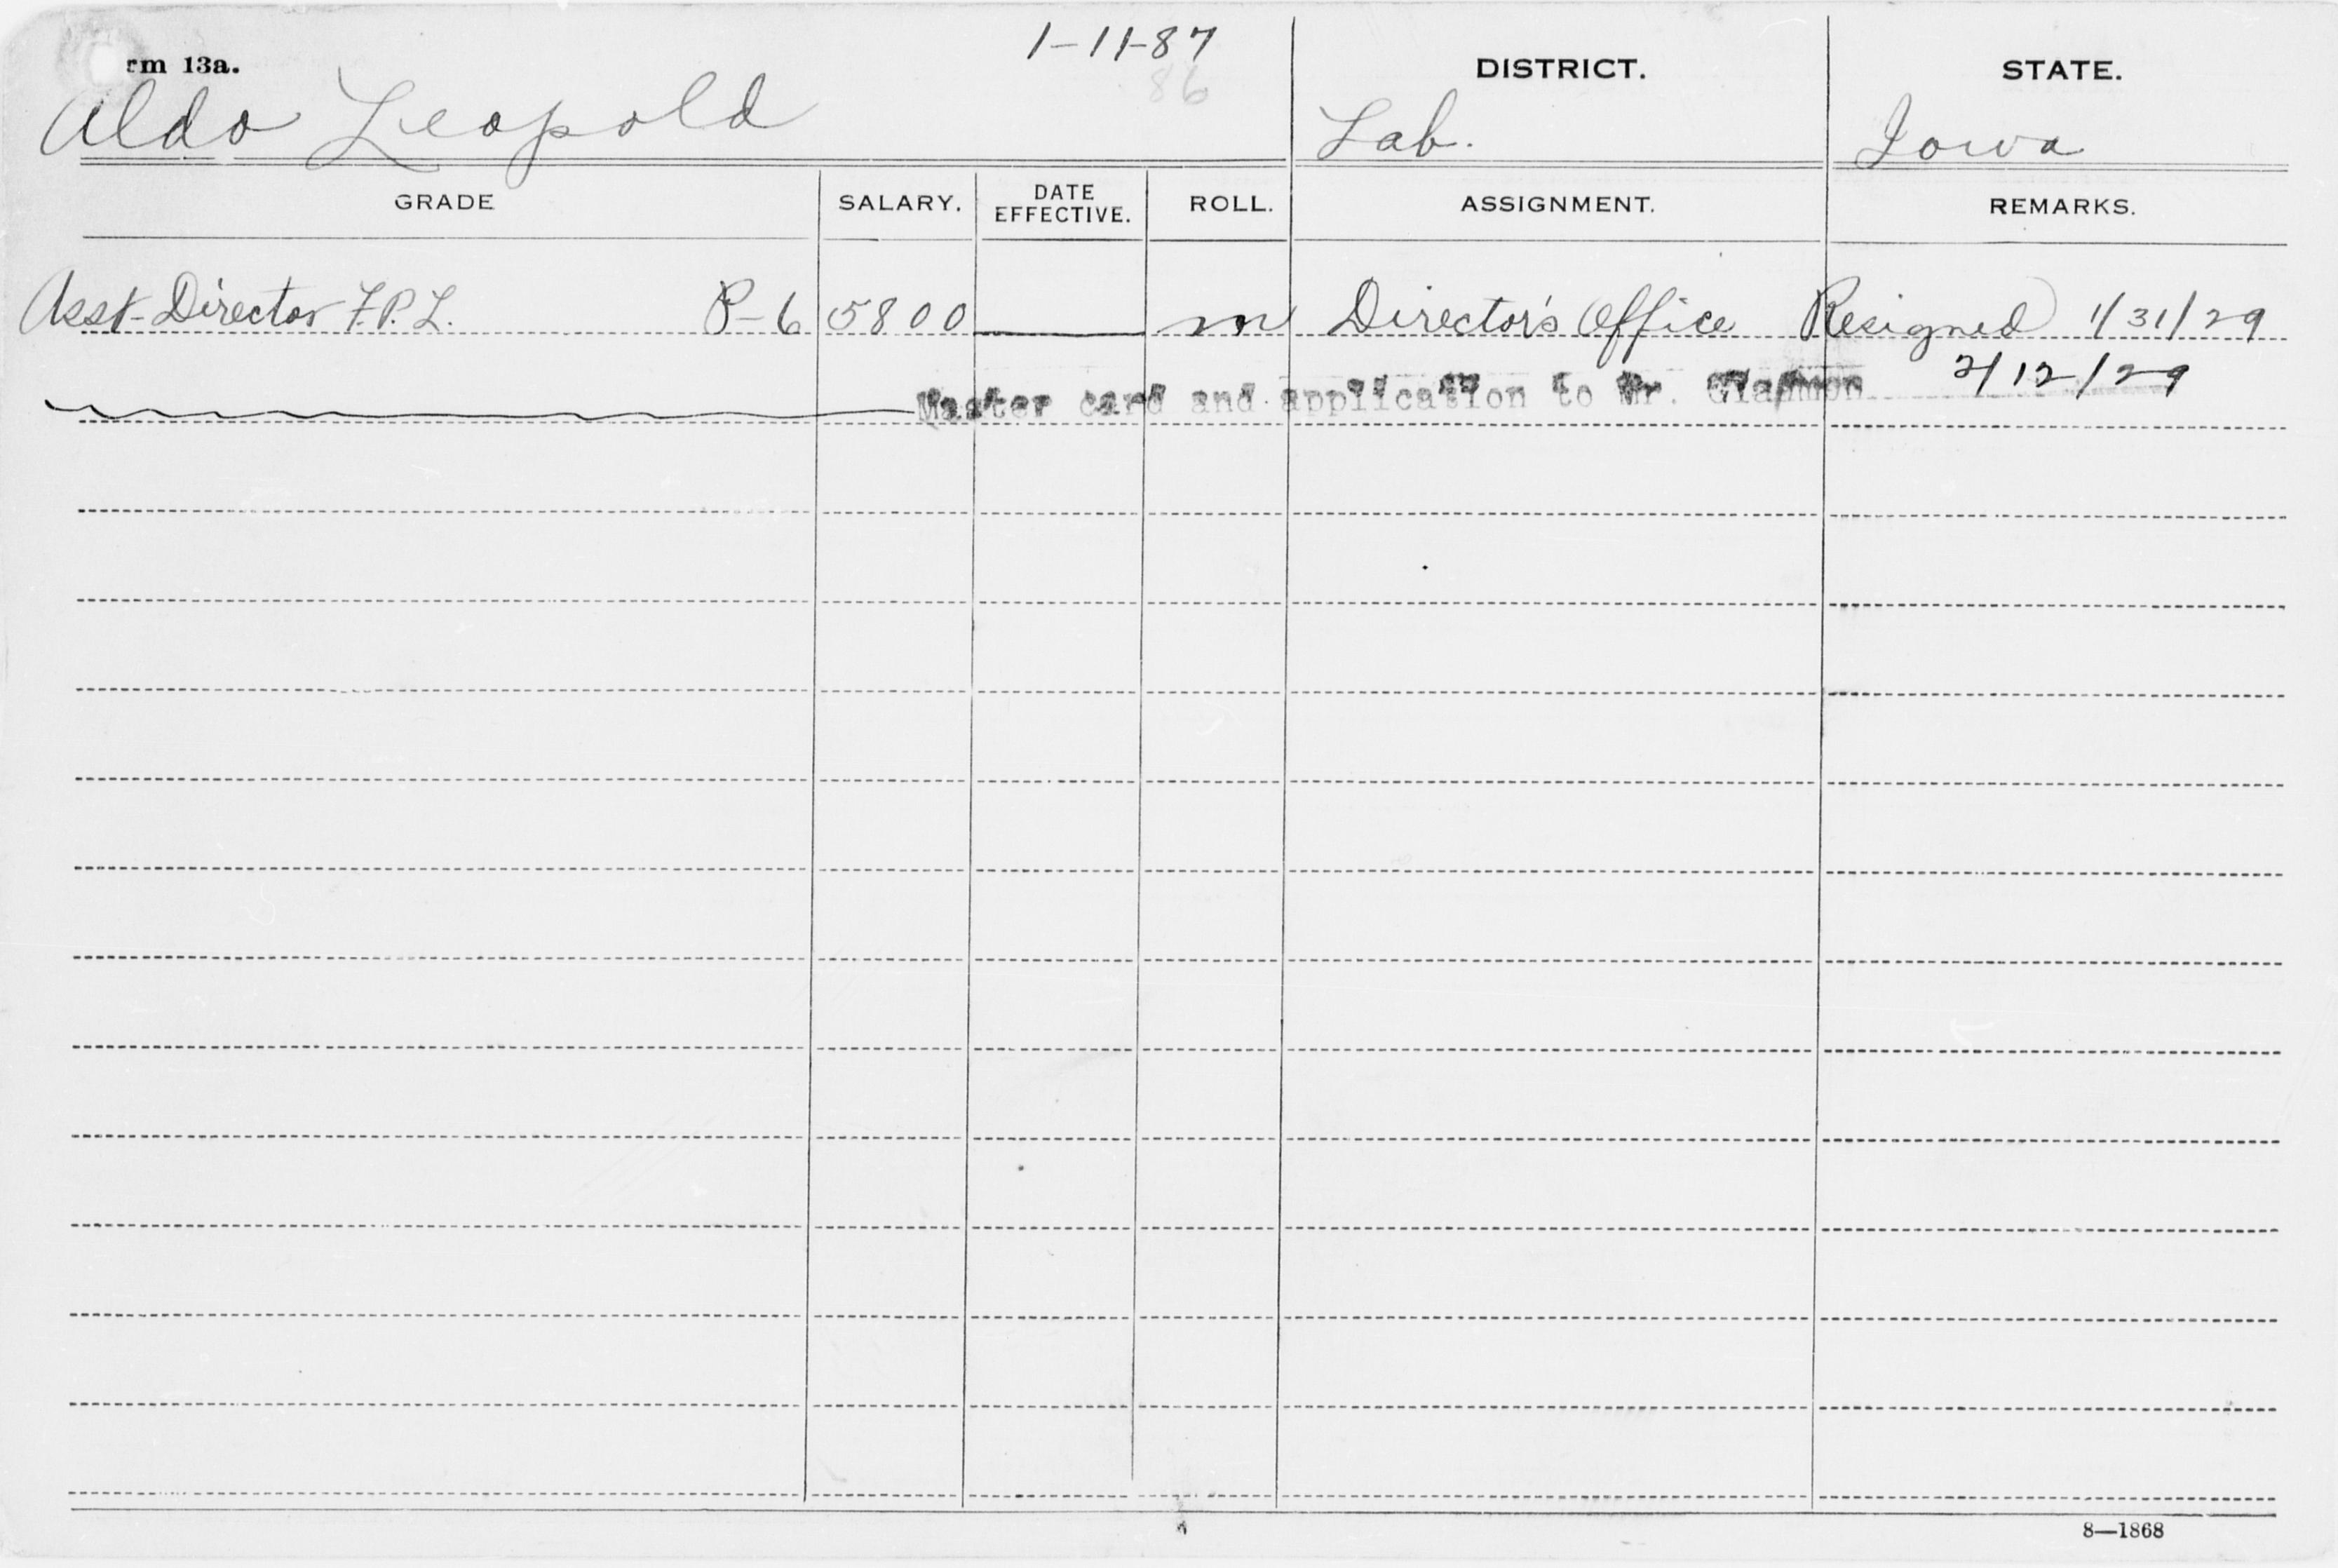 rm 13a.
1-11-87
86
DISTRICT.
STATE.
Aldo Leopold
Lab.
Iowa
GRADE SALARY. DATE EFFECTIVE. ROLL. ASSIGNMENT. REMARKS.
Asst Director F.P.L. P-6 5800 m Director's Office Resigned 1/31/29
Master card and application to Mr. 2/12/29
8—1868